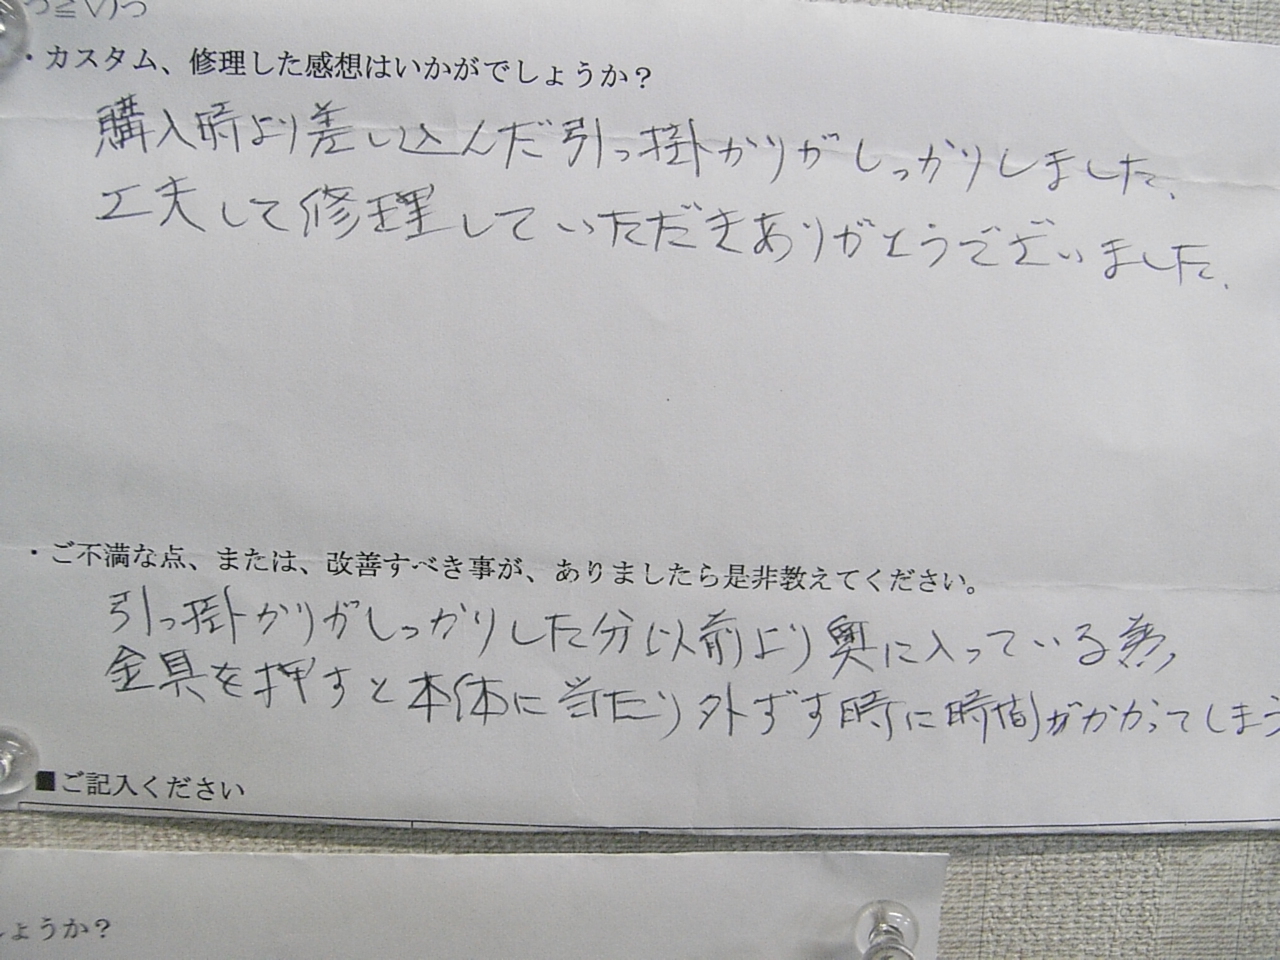 ・カスタム、修理した感想はいかがでしょうか？
購入時より差し込んだ引っ掛かりがしっかりしました。
工夫して修理していただきありがとうございました。
・ご不満な点、または、改善すべき事が、ありましたら是非教えてください。
引っ掛かりがしっかりした分以前より奥に入っている為、
金具を押すと本体に当たり外ずす時に時間がかかってしまう
■ご記入ください
しょうか？